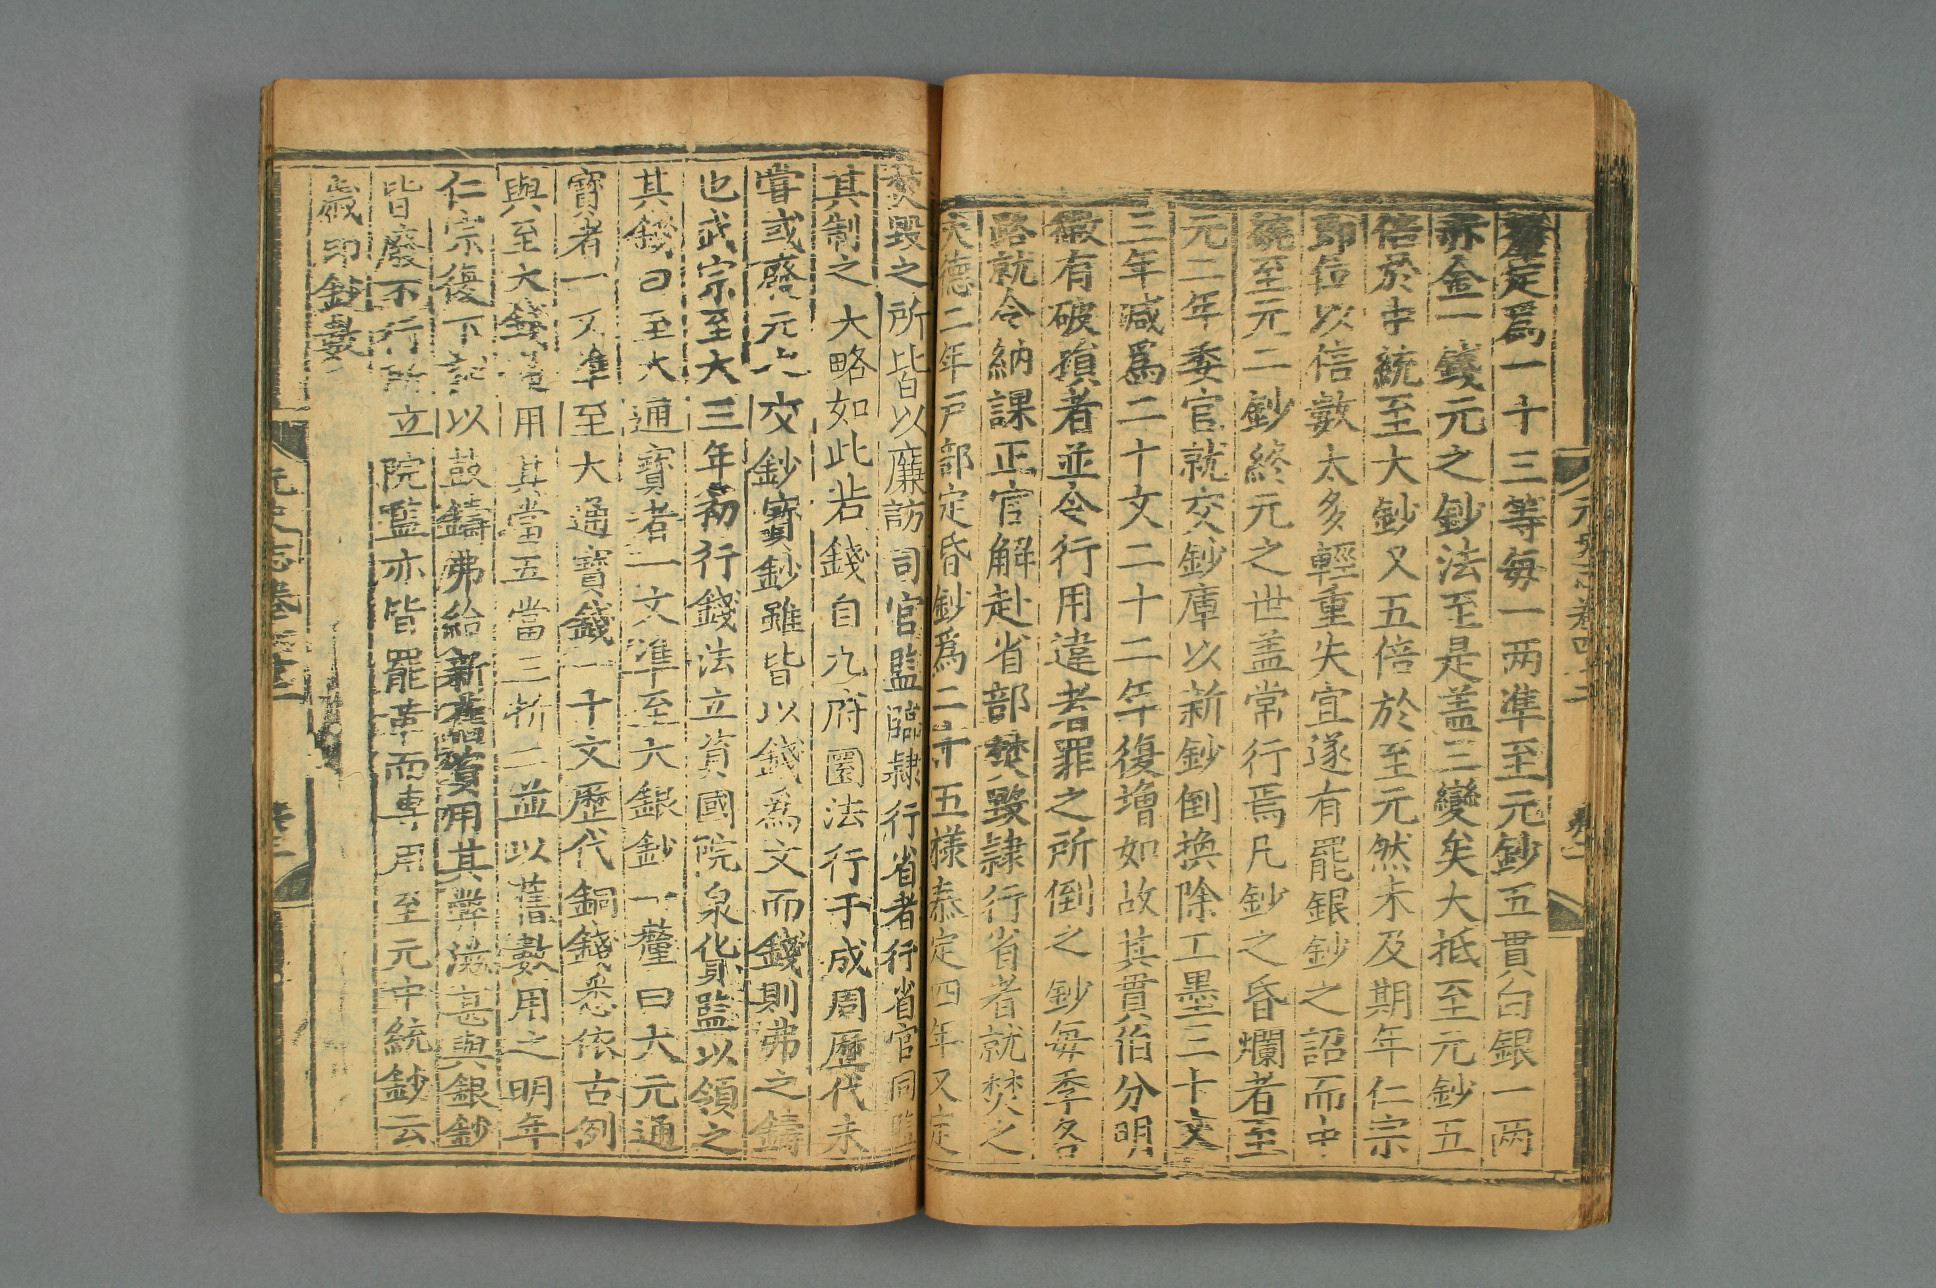 釐定爲一十三等每一两準至元鈔五貫白銀一两
赤金一錢元之鈔法至是盖三變矣大抵至元鈔五
倍於中統至大鈔又五倍於至元然未及期年仁宗
即位以倍數太多輕重失宜遂有罷銀鈔之詔而中
統至元二鈔終元之世盖常行焉凡鈔之昏爛者至
元二年委官就交鈔庫以新鈔倒換除工墨三十文
三年減爲二十文二十二年復增如故其貫伯分明
微有破損者並令行用違者罪之所倒之鈔每季各
路就令納課正官解赴省部焚毀隷行省者就焚之
大德二年戶部定昏鈔爲二十五樣泰定四年又定
焚毀之所皆以廉訪司官監臨隷行省者行省官同監
其制之大略如此若錢自九府圜法行于成周歷代未
嘗或廢元之交鈔寳鈔雖皆以錢爲文而錢則弗之鑄
也武宗至大三年初行錢法立資國院泉貨監以領之
其錢曰至大通寳者一文準至大銀鈔一釐曰大元通
寳者一文準至大通寳錢一十文歷代銅錢悉依古例
與至大錢通用其當五當三折二並以舊數用之明年
仁宗復下詔以鼓鑄弗給新舊資用其弊滋甚與銀鈔
皆廢不行所立院監亦皆罷革而專用至元中統鈔云
歲印鈔數